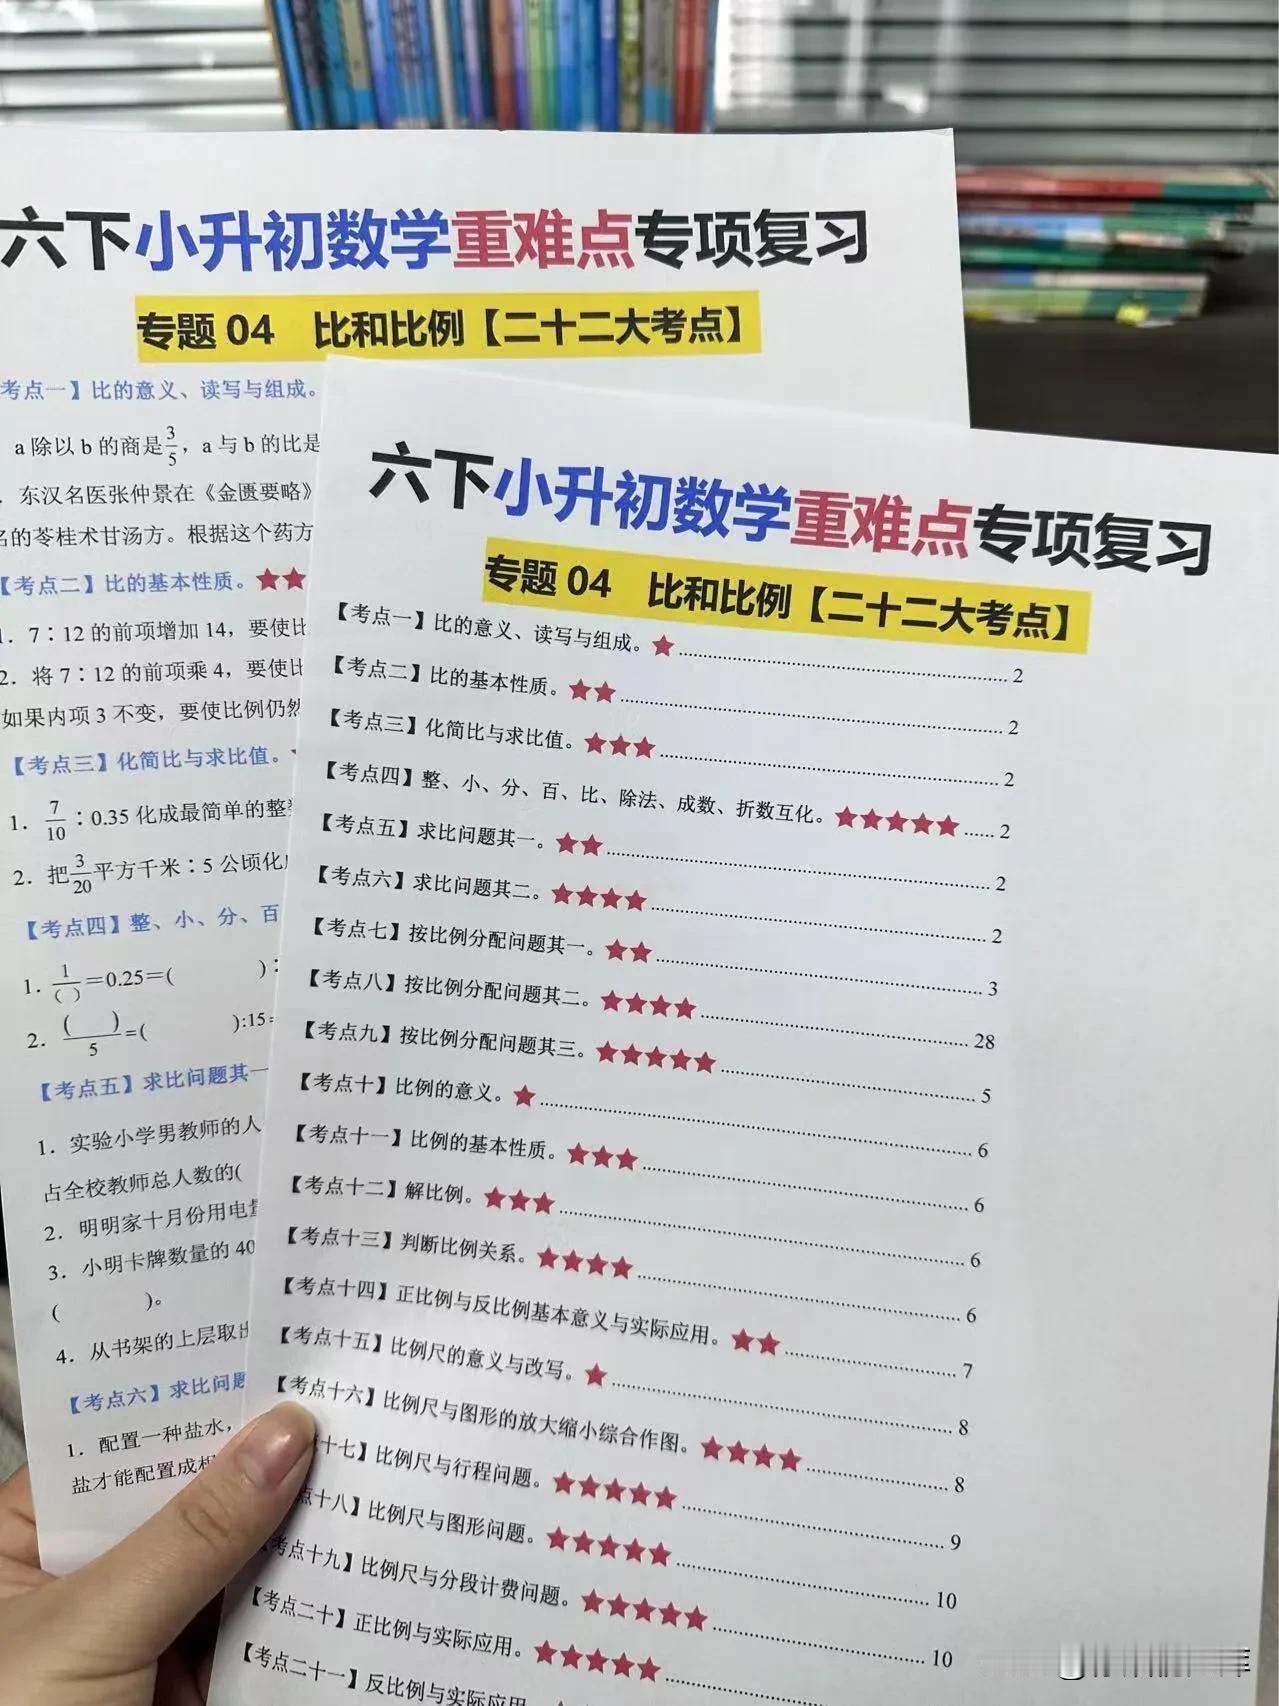 六下小升初数学重难点专项复习
专题 04 比和比例【二十二大考点】
考点一】比的意义、读写与组成。
a 除以 b 的商是3/5，a 与 b 的比是
. 东汉名医张仲景在《金匮要略》
名的苓桂术甘汤方。根据这个药方
【考点二】比的基本性质。★★
1. 7∶12 的前项增加 14，要使比
2. 将 7∶12 的前项乘 4，要使比
如果内项 3 不变，要使比例仍然
【考点三】化简比与求比值。
1. 7/10∶0.35 化成最简单的整数
2. 把3/20平方千米∶5 公顷化
【考点四】整、小、分、百
1. 1/( )=0.25=( )∶
2. ( )/5=( ):15=
【考点五】求比问题其一
1. 实验小学男教师的人
占全校教师总人数的(
2. 明明家十月份用电量
3. 小明卡牌数量的 40
( )。
4. 从书架的上层取出
【考点六】求比问题
1. 配置一种盐水，
盐才能配置成
六下小升初数学重难点专项复习
专题 04 比和比例【二十二大考点】
【考点一】比的意义、读写与组成。★ 2
【考点二】比的基本性质。★★ 2
【考点三】化简比与求比值。★★★ 2
【考点四】整、小、分、百、比、除法、成数、折数互化。★★★★★ 2
【考点五】求比问题其一。★★ 2
【考点六】求比问题其二。★★★★ 2
【考点七】按比例分配问题其一。★★ 3
【考点八】按比例分配问题其二。★★★★ 28
【考点九】按比例分配问题其三。★★★★★ 5
【考点十】比例的意义。★ 6
【考点十一】比例的基本性质。★★★ 6
【考点十二】解比例。★★★ 6
【考点十三】判断比例关系。★★★★ 6
【考点十四】正比例与反比例基本意义与实际应用。★★ 7
【考点十五】比例尺的意义与改写。★ 8
【考点十六】比例尺与图形的放大缩小综合作图。★★★★ 8
点十七】比例尺与行程问题。★★★★★ 9
点十八】比例尺与图形问题。★★★★★ 10
考点十九】比例尺与分段计费问题。★★★★★ 10
【考点二十】正比例与实际应用。★★★★★
【考点二十一】反比例与实际应用